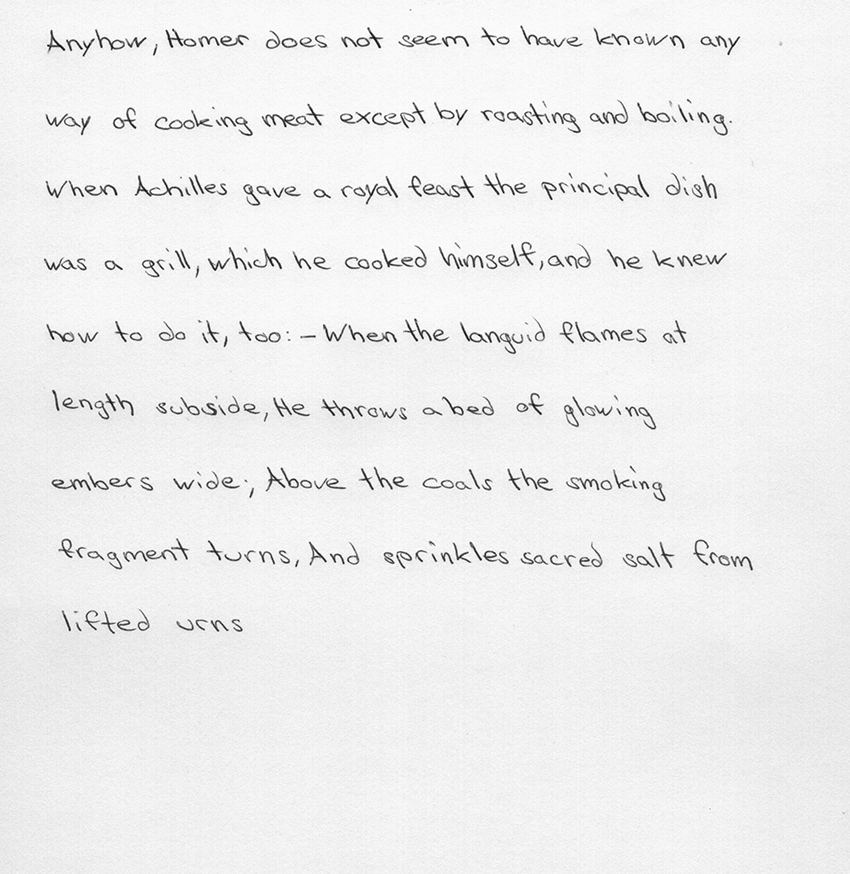 Anyhow, Homer does not seem to have known any
way of cooking meat except by roasting and boiling.
When Achilles gave a royal feast the principal dish
was a grill, which he cooked himself, and he knew
how to do it, too: - When the languid flames at
length subside, He throws a bed of glowing
embers wide; Above the coals the smoking
fragment turns, And sprinkles sacred salt from
lifted urns